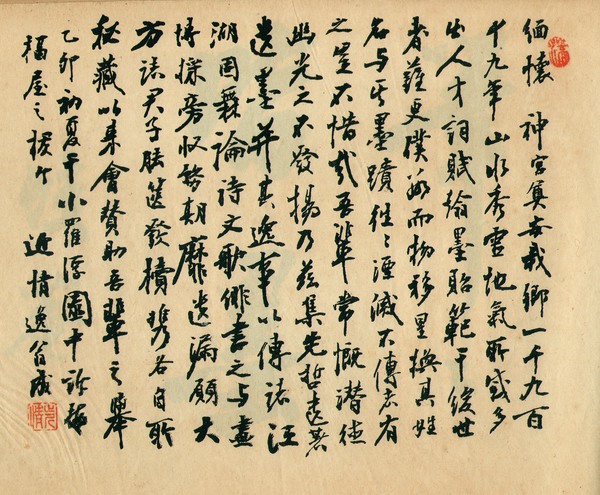 緬懷 神宮奠安我鄉一千九百
十九年山水秀霊地氣所多
出人才詞賦翰墨貽範于後世
者更僕難而物移星換其姓
名与其墨蹟往々湮滅不傳者有
之豈不惜哉吾輩常慨潜徳
幽光之不發揚乃茲集先哲遺著
遺墨并其逸事以傳諸江
湖因論詩文歌俳書之与畫
博採旁收期靡遺漏願大
方諸君子胠篋發櫝攜各自所
秘藏以来會贊助吾輩之舉
乙卯初夏于小羅浮園中
福屋之楼下 近情逸翁識